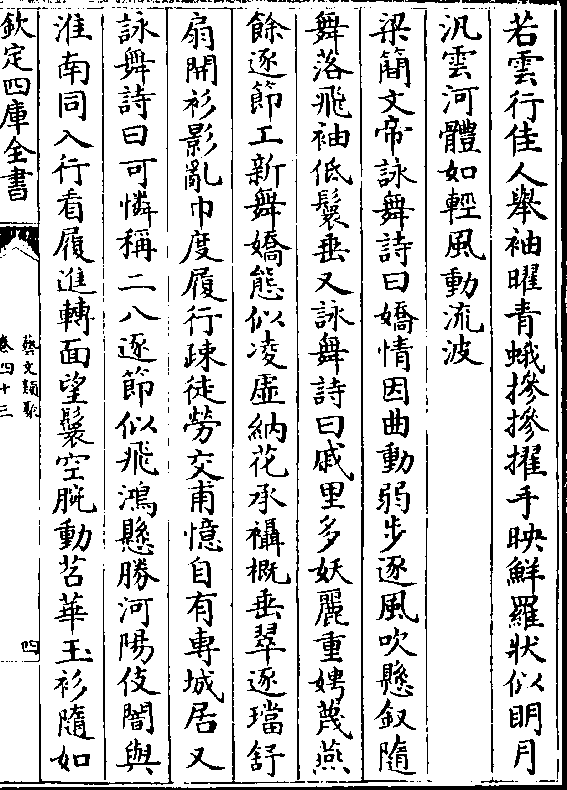 若雲行佳人舉袖曜青蛾摻摻擢手映鮮羅狀似明月
汎雲河體如輕風動流波
梁簡文帝詠舞詩曰嬌情因曲動弱步逐風吹懸釵隨
舞落飛袖低鬟垂又詠舞詩曰戚里多妖麗重娉蔑燕
餘逐節工新舞嬌態似凌虛納花承襵概垂翠逐璫舒
扇開衫影亂巾度履行疎徒勞交甫憶自有專城居又
詠舞詩曰可憐稱二八逐節似飛鴻懸勝河陽伎闇與
淮南同入行看履進轉面望鬟空腕動苕華玉衫隨如
欽定四庫全書
藝文類聚
卷四十三
四